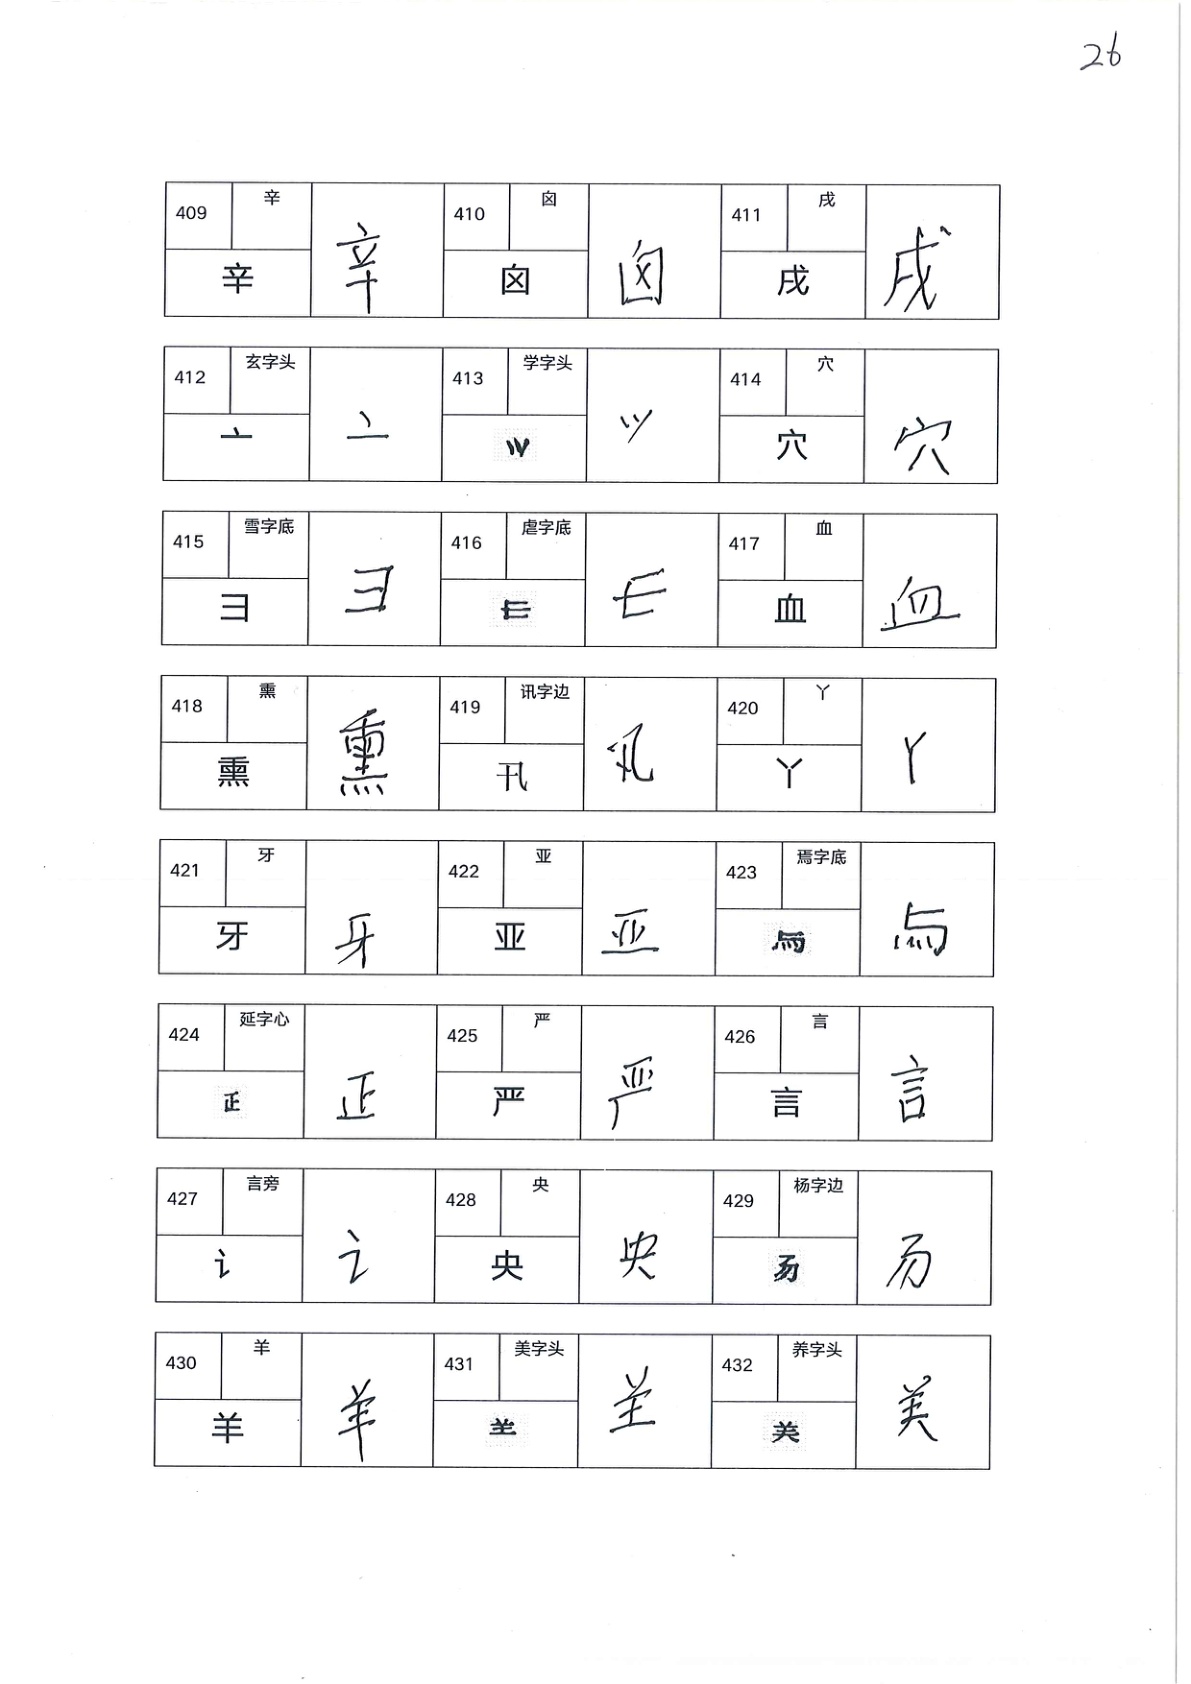 26
409 辛 辛 410 囟 囟 411 戌 戌
辛 囟 戌
412 玄字头 亠 413 学字头 414 穴 穴
亠 穴
415 雪字底 彐 416 虐字底 417 血 血
彐 血
418 熏 熏 419 讯字边 卂 420 丫 丫
熏 卂 丫
421 牙 牙 422 亚 亚 423 焉字底
牙 亚
424 延字心 正 425 严 严 426 言 言
严 言
427 言旁 讠 428 央 央 429 杨字边
讠 央
430 羊 羊 431 美字头 𦍌 432 养字头
羊 𦍌